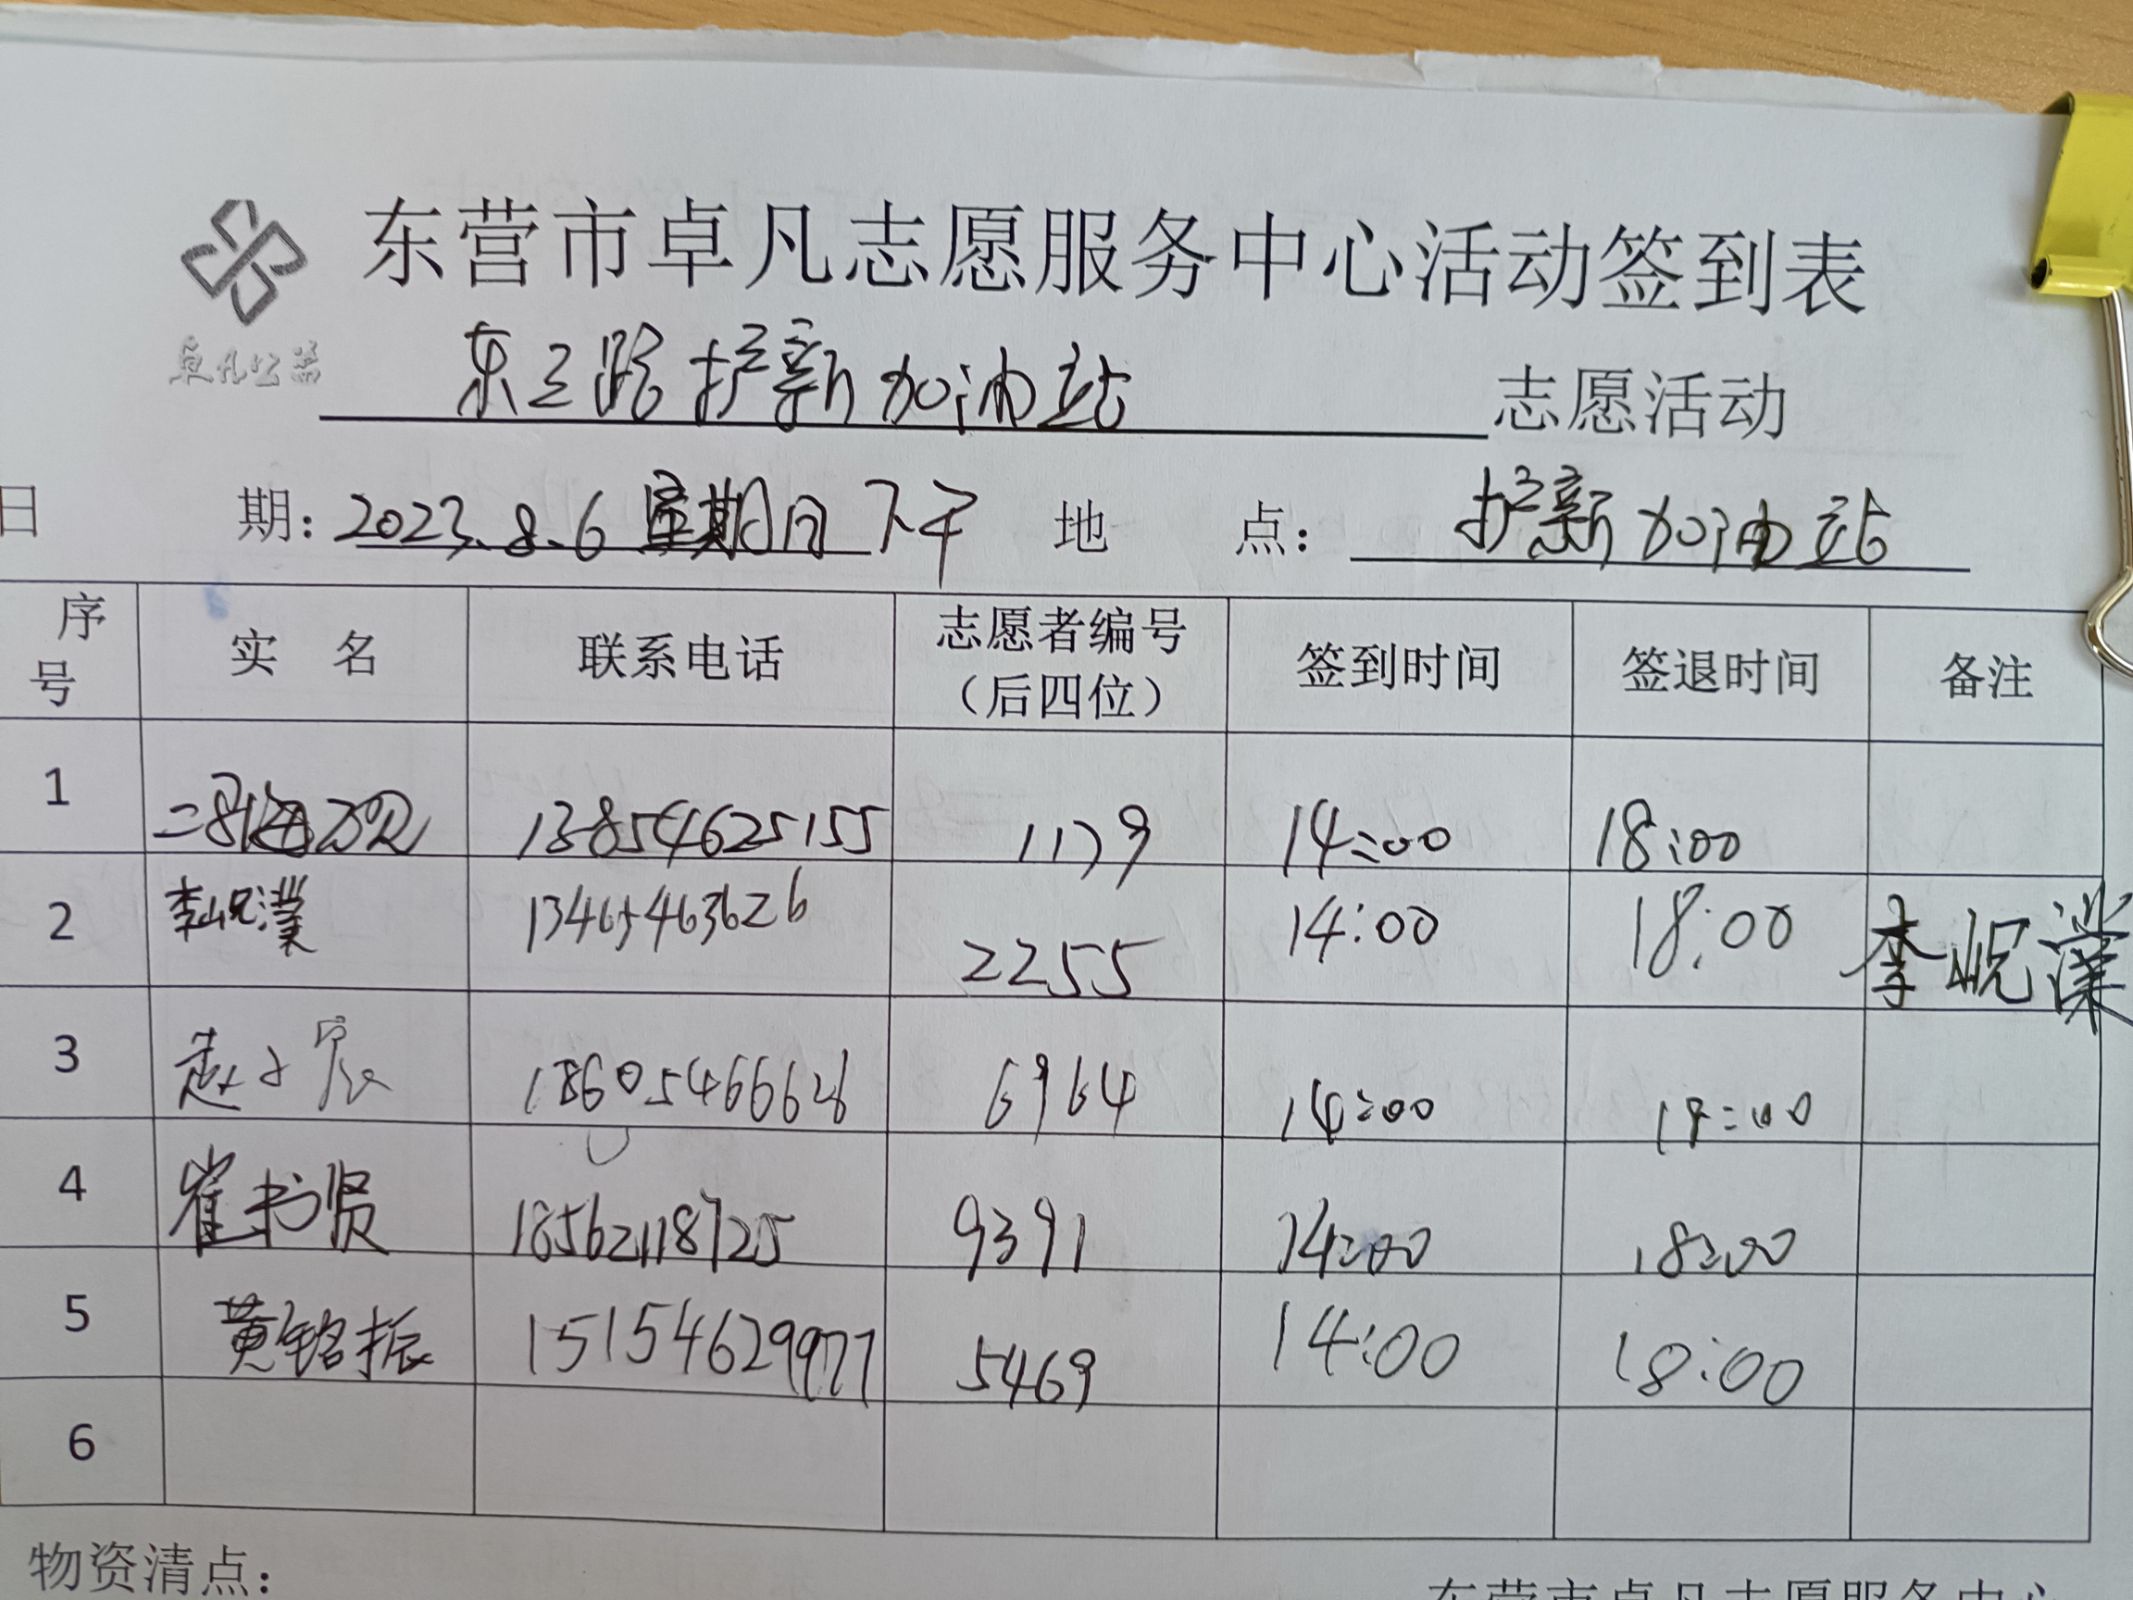 东营市卓凡志愿服务中心活动签到表
卓凡公益
东三路护新加油站 志愿活动
日 期：2023.8.6 星期日下午 地 点：护新加油站
序号 实 名 联系电话 志愿者编号（后四位） 签到时间 签退时间 备注
1 13854625155 1179 14:00 18:00
2 李岘濮 13465463626 2255 14:00 18:00 李岘濮
3 赵子宸 18605466626 6964 14:00 18:00
4 崔书贤 18562118725 9391 14:00 18:00
5 黄铭振 15154629977 5469 14:00 18:00
6
物资清点：
东营市卓凡志愿服务中心